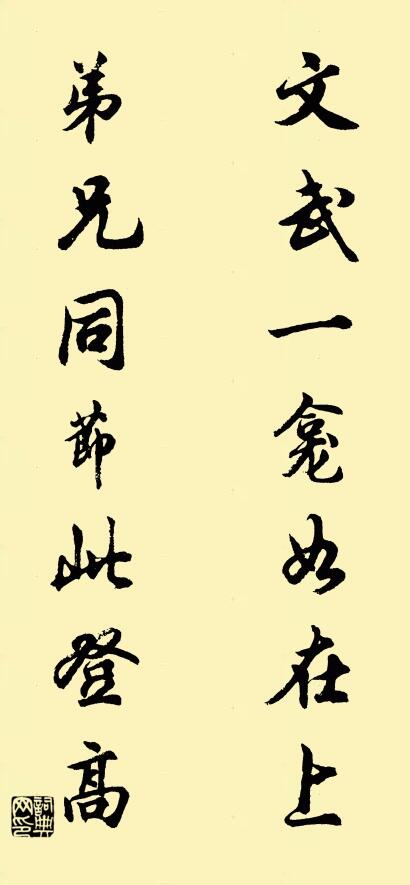 文武一龛如在上
弟兄同節此登高
詞典网印